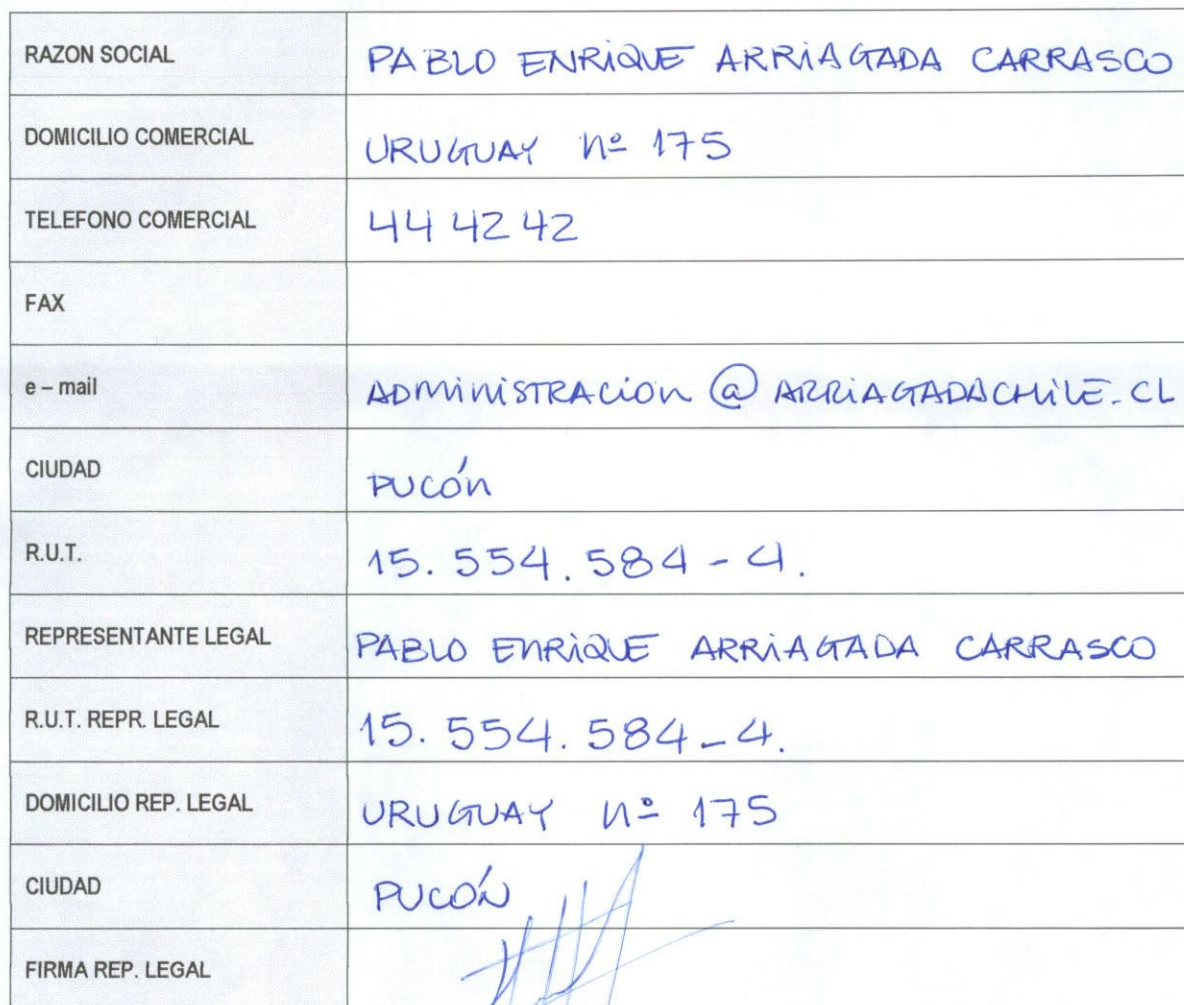 RAZON SOCIAL PABLO ENRIQUE ARRIAGADA CARRASCO
DOMICILIO COMERCIAL URUGUAY Nº 175
TELEFONO COMERCIAL 44 42 42
FAX
e – mail ADMINISTRACION @ ARRIAGADACHILE.CL
CIUDAD PUCÓN
R.U.T. 15.554.584-4.
REPRESENTANTE LEGAL PABLO ENRIQUE ARRIAGADA CARRASCO
R.U.T. REPR. LEGAL 15.554.584-4.
DOMICILIO REP. LEGAL URUGUAY Nº 175
CIUDAD PUCÓN
FIRMA REP. LEGAL